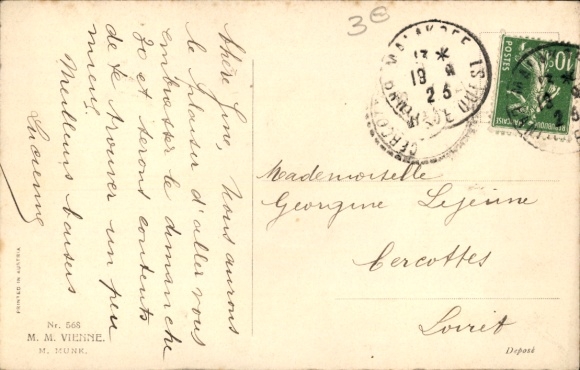 Chère Gine, Nous aurons
le plaisir d'aller vous
embrasser le dimanche
30 et serons contents
de te trouver un peu
mieux
Meilleurs baisers
Lucienne
3
MALAKOFF
13 *
18 8
25
SEINE
10c
POSTES
Mademoiselle
Georgine Lejeune
Cercottes
Loiret
PRINTED IN AUSTRIA
Nr. 568
M. M. VIENNE.
M. MUNK.
Deposé